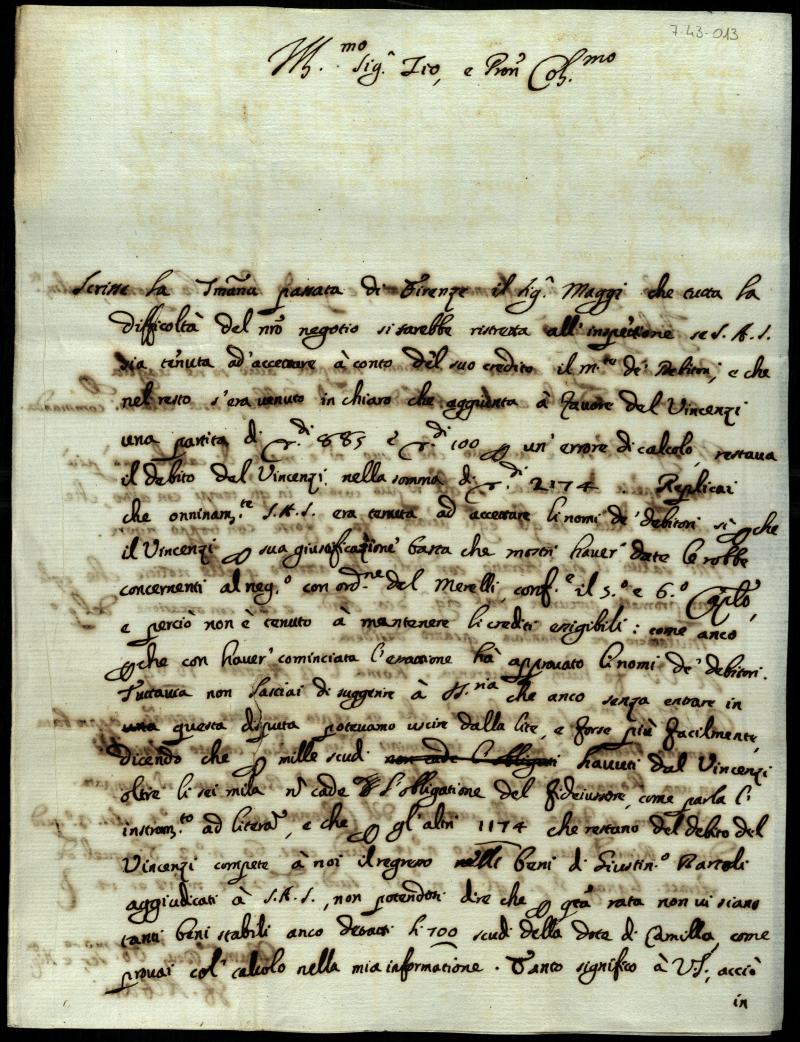 7-43-013
Ill.mo Sig.r Zio, e Pron Col.mo
Scrisse la 7mãna passata di Firenze il Sig.r Maggi che tutta la
difficoltà del nrõ negotio si sarebbe ristretta all' inspettione se S. A. S.
sia tenuta ad' accettare à conto del suo credito il m.te de' Debitori, e che
nel resto s'era venuto in chiaro che aggiunta à favore del Vincenzi
una partita di 885 e 100 un' errore di calcolo, restava
il debito del Vincenzi nella somma di 2174. Replicai
che onninam.te S. A. S. era tenuta ad accettare li nomi de' debitori sì che
il Vincenzi sua giustificazione basta che mostri haver' date le robbe
concernenti al neg.o con ord.ne del Merelli, conf.e il 5.o e 6.o Cap.lo,
e perciò non è tenuto à mantenere li crediti esigibili: come anco
che con haver' cominciata l'esattione hà approvato li nomi de' debitori.
Tuttavia non lasciai di suggerire à che anco senza entrare in
una questa disputa potevamo uscire dalla lite, e forse più facilmente,
dicendo che mille scudi non cade l'obligati havuti dal Vincenzi
oltre li sei mila nõ cade l'obligatione del fideiussore, come parla l'
instrom.to ad literã, e che gl'altri 1174 che restano del debito del
Vincenzi compete à noi il regresso nelli beni di Giustin.o Bartoli
aggiudicati à S. A. S., non potendosi dire che qtã rata non vi siano
tanti beni stabili anco detratti li 700 scudi della dote di Camilla, come
provai col' calcolo nella mia informatione. Tanto significo à V.S., acciò
in